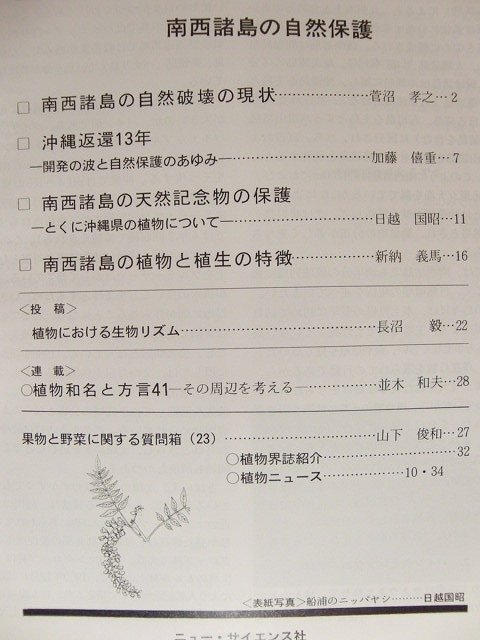 南西諸島の自然保護
□ 南西諸島の自然破壊の現状…………………菅沼 孝之…2
□ 沖縄返還13年
―開発の波と自然保護のあゆみ―…………………加藤 僖重…7
□ 南西諸島の天然記念物の保護
―とくに沖縄県の植物について―…………………日越 国昭…11
□ 南西諸島の植物と植生の特徴…………………新納 義馬…16
〈投 稿〉
植物における生物リズム…………………長沼 毅…22
〈連 載〉
○植物和名と方言41―その周辺を考える―…………………並木 和夫…28
果物と野菜に関する質問箱（23）…………………山下 俊和…27
○植物界誌紹介…………………32
○植物ニュース…………………10・34
〈表紙写真〉船浦のニッパヤシ………日越国昭
ニュー・サイエンス社